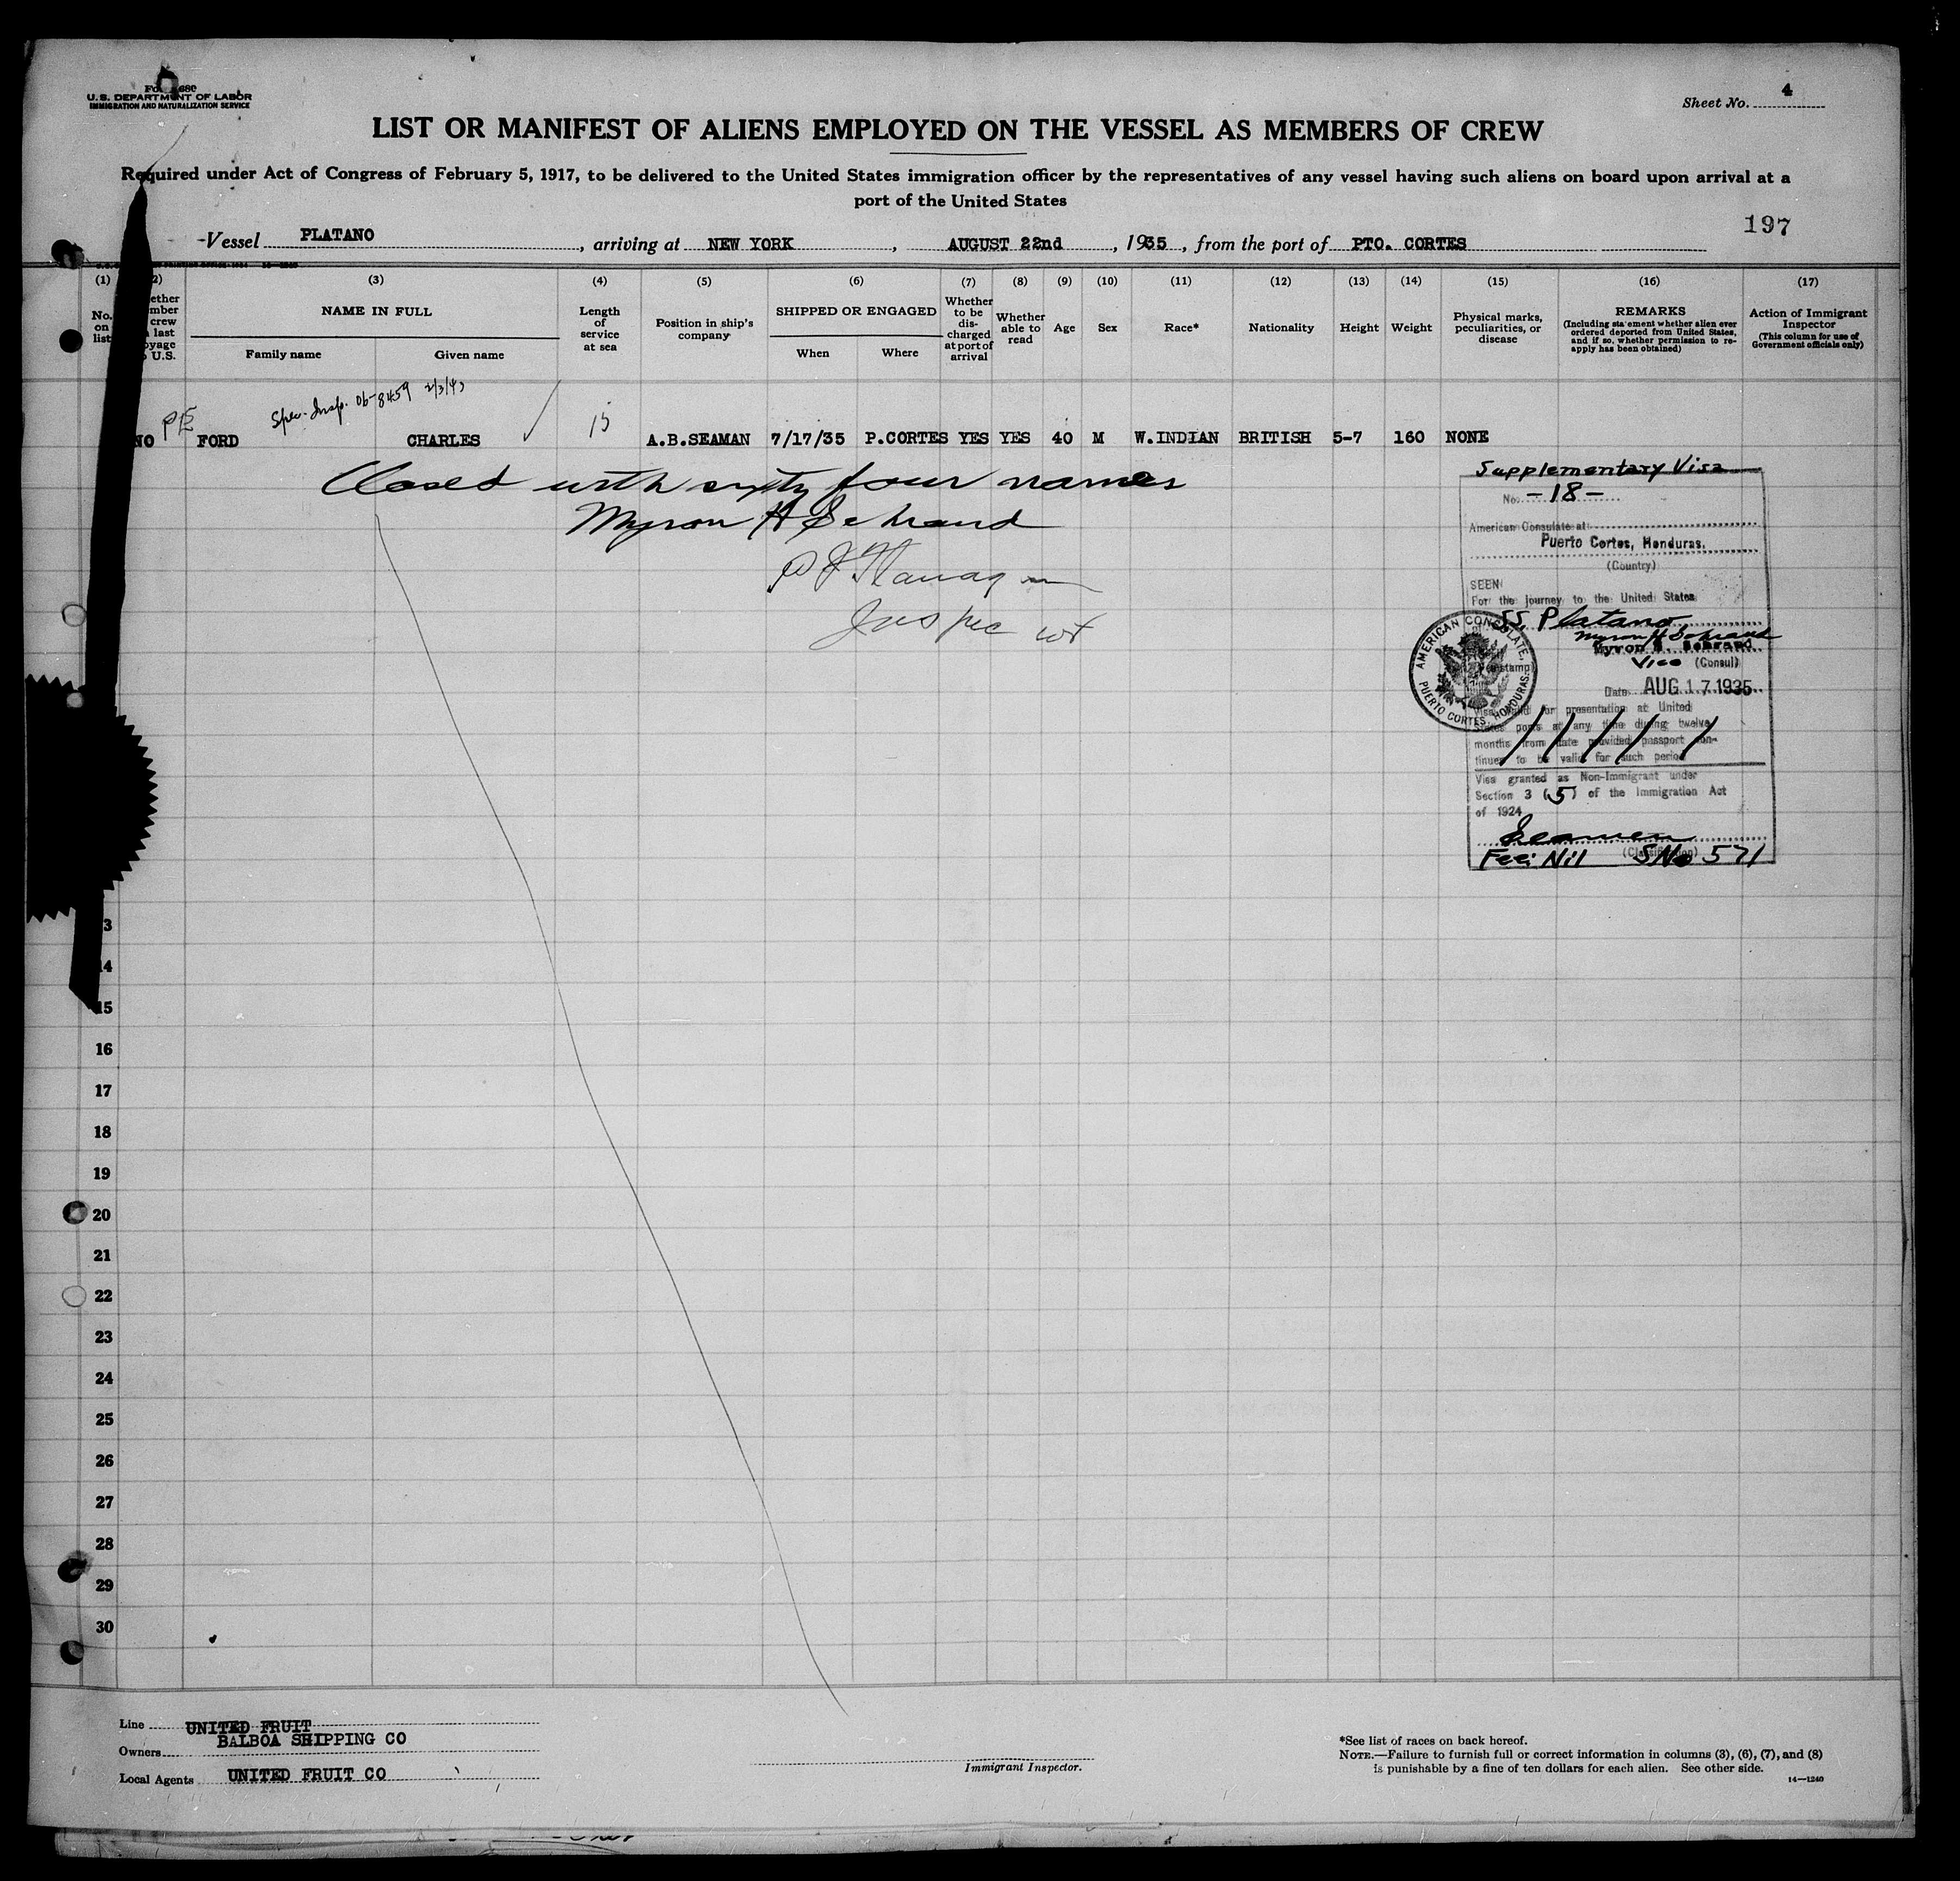 U.S. DEPARTMENT OF LABOR
IMMIGRATION AND NATURALIZATION SERVICE
Sheet No. 4
LIST OR MANIFEST OF ALIENS EMPLOYED ON THE VESSEL AS MEMBERS OF CREW
Required under Act of Congress of February 5, 1917, to be delivered to the United States immigration officer by the representatives of any vessel having such aliens on board upon arrival at a
port of the United States
197
Vessel PLATANO, arriving at NEW YORK, AUGUST 22nd, 1935, from the port of PTO. CORTES
(1) (2) (3) (4) (5) (6) (7) (8) (9) (10) (11) (12) (13) (14) (15) (16) (17)
No. on list
NAME IN FULL
Family name Given name
Length of service at sea
Position in ship's company
SHIPPED OR ENGAGED
When Where
Whether to be dis-charged at port of arrival
Whether able to read
Age
Sex
Race*
Nationality
Height
Weight
Physical marks, peculiarities, or disease
REMARKS
(Including statement whether alien ever ordered deported from United States, and if so, whether permission to re-apply has been obtained)
Action of Immigrant Inspector
(This column for use of Government officials only)
Spec. Insp. 06-8459 2/3/43
NO PE FORD CHARLES 15 A.B.SEAMAN 7/17/35 P.CORTES YES YES 40 M W.INDIAN BRITISH 5-7 160 NONE
Closed with sixty four names
Myron H Schraud
Flanagan
Inspector
Supplementary Visa
No. -18-
American Consulate at
Puerto Cortes, Honduras.
(Country)
SEEN
For the journey to the United States
SS Platano
Myron H Schraud
Myron H. Schraud
Vice (Consul)
AMERICAN CONSULATE,
PUERTO CORTES, HONDURAS.
Date AUG 17 1935
Visa valid for presentation at United
States ports at any time during twelve
months from date provided passport con-
tinues to be valid for such period
Visa granted as Non-Immigrant under
Section 3 (5) of the Immigration Act
of 1924
Seamen
(Classification)
Fee: Nil SNo 571
13
14
15
16
17
18
19
20
21
22
23
24
25
26
27
28
29
30
Line UNITED FRUIT
Owners BALBOA SHIPPING CO
Local Agents UNITED FRUIT CO
Immigrant Inspector.
*See list of races on back hereof.
NOTE.—Failure to furnish full or correct information in columns (3), (6), (7), and (8)
is punishable by a fine of ten dollars for each alien. See other side.
14—1240